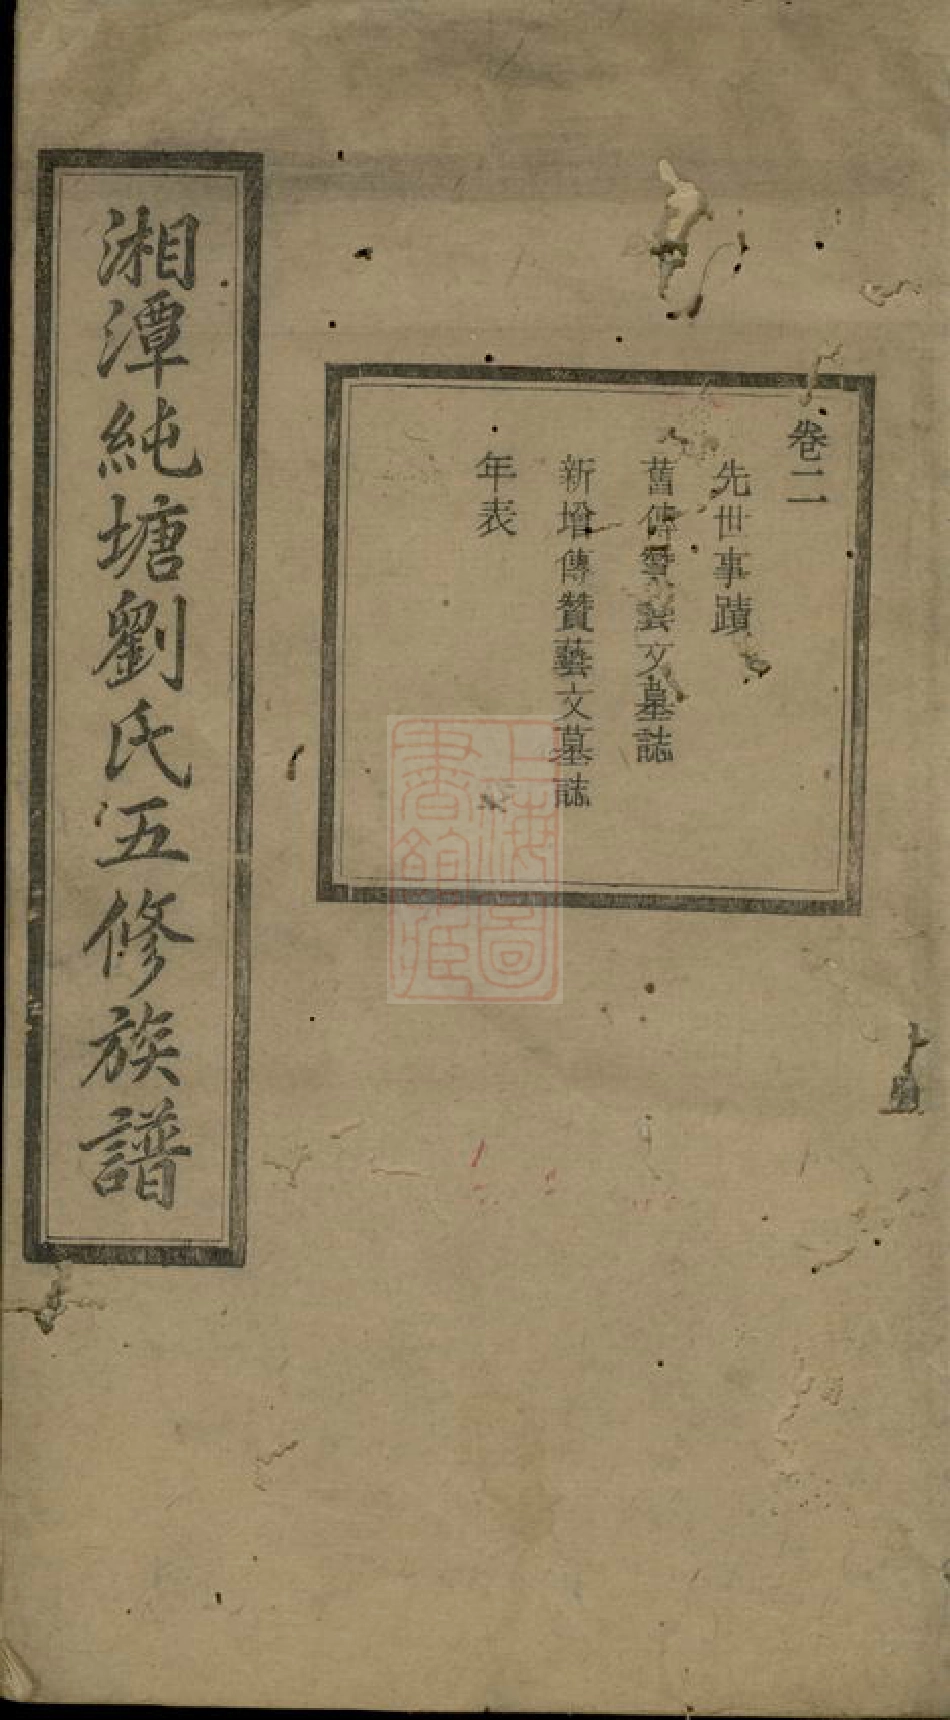 卷二
先世事蹟
舊傳贊藝文墓誌
新增傳贊藝文墓誌
年表
湘潭純塘劉氏五修族譜
上海圖書館藏